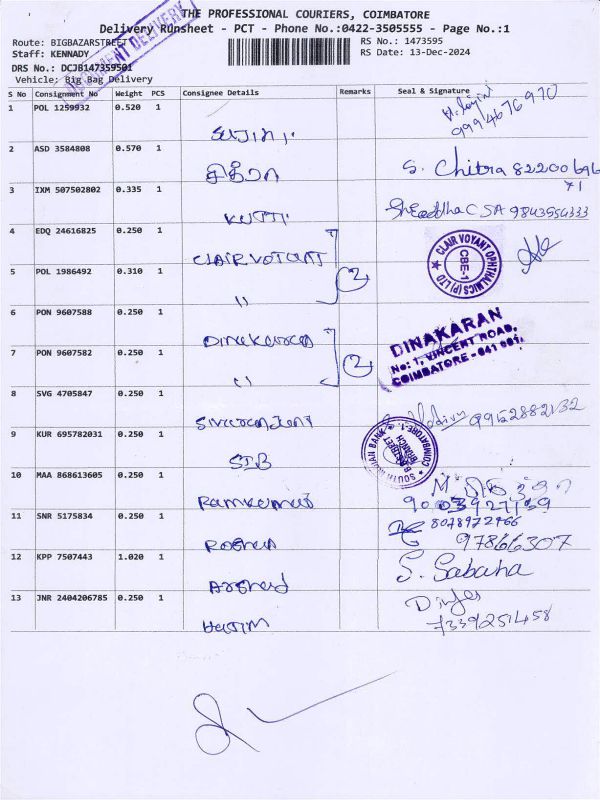 THE PROFESSIONAL COURIERS, COIMBATORE
Delivery Runsheet - PCT - Phone No.:0422-3505555 - Page No.:1
Route: BIGBAZARSTREET
RS No.: 1473595
Staff: KENNADY
RS Date: 13-Dec-2024
DRS No.: DCJB147359501
Vehicle: Big Bag Delivery
DELIVERY
S No Consignment No Weight PCS Consignee Details Remarks Seal & Signature
1 POL 1259932 0.520 1
9994676970
2 ASD 3584808 0.570 1 சித்ரா S. Chitra 82200696
3 IXM 507502802 0.335 1 KUTTI Shraddha C S A 9843554333
4 EDQ 24616825 0.250 1 CLAIR VOYANT
CLAIR VOYANT OPHTHALMICS (P) LTD
CBE-1
5 POL 1986492 0.310 1 " 2
6 PON 9607588 0.250 1 Dinakaran
DINAKARAN
No: 1, VINCENT ROAD,
COIMBATORE - 641 001.
7 PON 9607582 0.250 1 " 2
8 SVG 4705847 0.250 1 9952882132
9 KUR 695782031 0.250 1 SIB
SOUTH INDIAN BANK
COIMBATORE-1
BRANCH
10 MAA 868613605 0.250 1 Ramkumar
9003927159
11 SNR 5175834 0.250 1 Roshan 8078972766
97866307
12 KPP 7507443 1.020 1 Arshad S. Sabana
13 JNR 2404206785 0.250 1 Hasim
7339251458